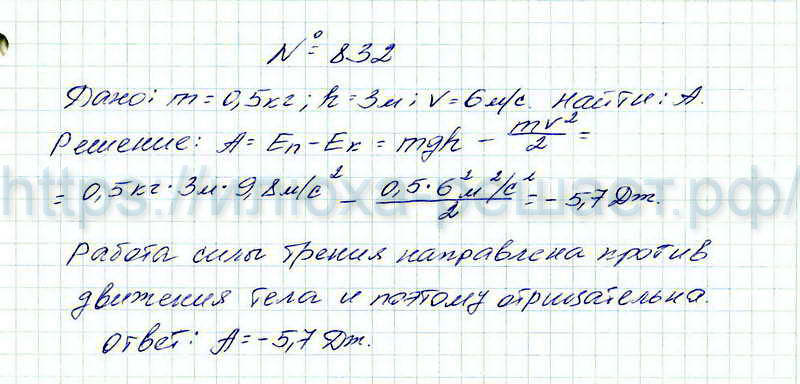 № 832
Дано: m = 0,5 кг; h = 3 м; V = 6 м/с. Найти: A.
Решение: A = Eп - Eк = mgh - mv²/2 =
= 0,5 кг · 3 м · 9,8 м/с² - 0,5 · 6² м²/с²/2 = - 5,7 Дж.
Работа силы трения направлена против
движения тела и поэтому отрицательна.
Ответ: A = - 5,7 Дж.
https://илюха-решает.рф/